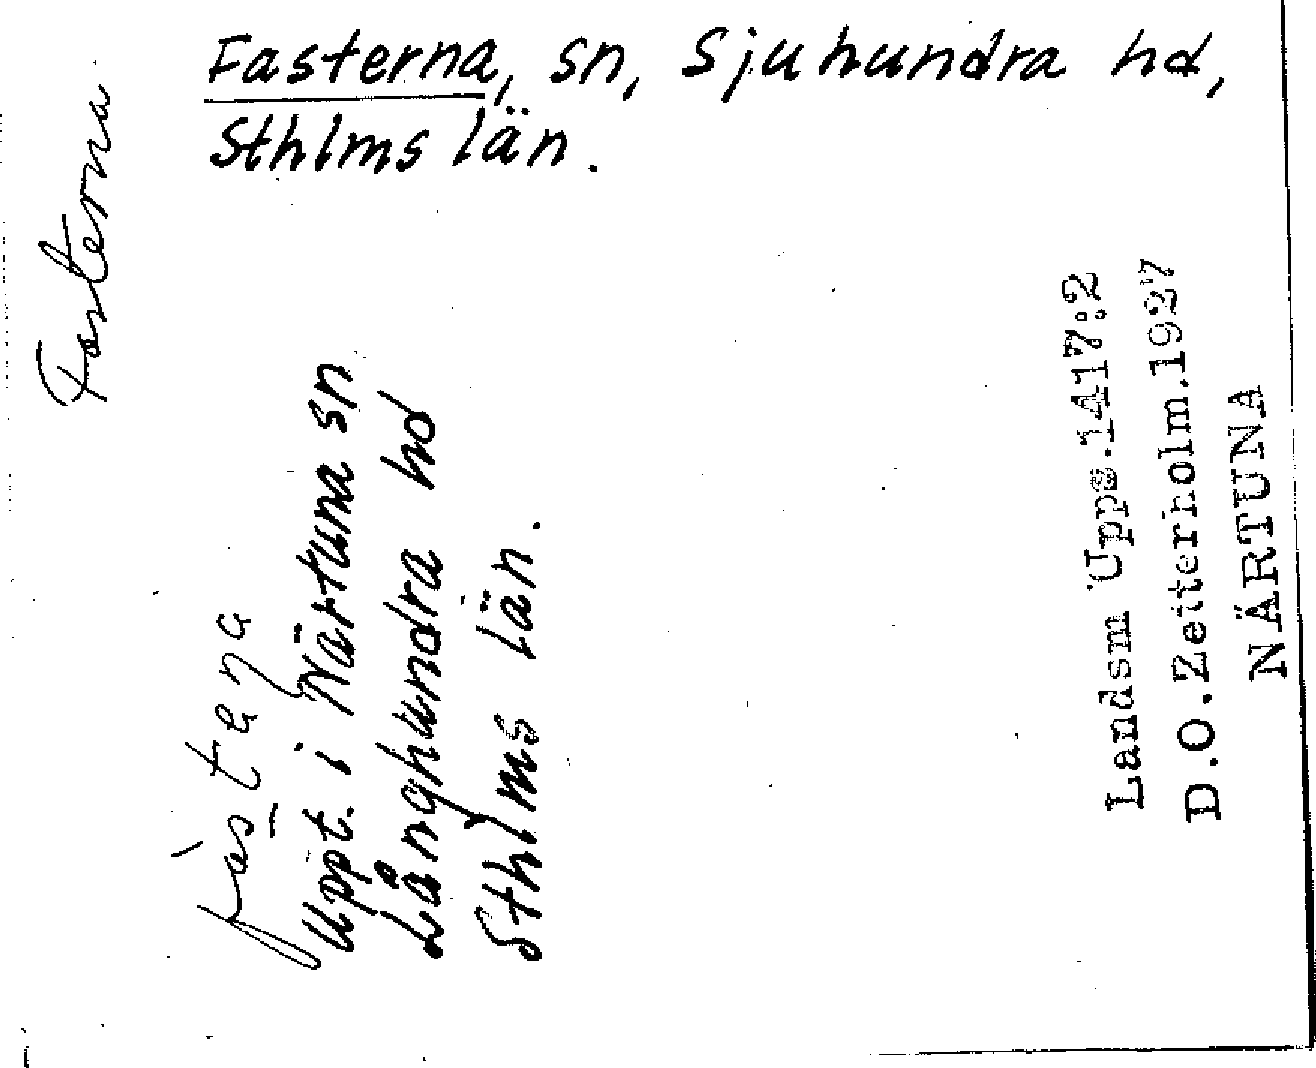 Fasterna, sn, Sjuhundra hd,
Sthlms län.
Fasterna
Uppt. i Närtuna sn
Långhundra hd
Sthlms län.
Landsm Upps.1417:2
D.O.Zetterholm.1927
NÄRTUNA